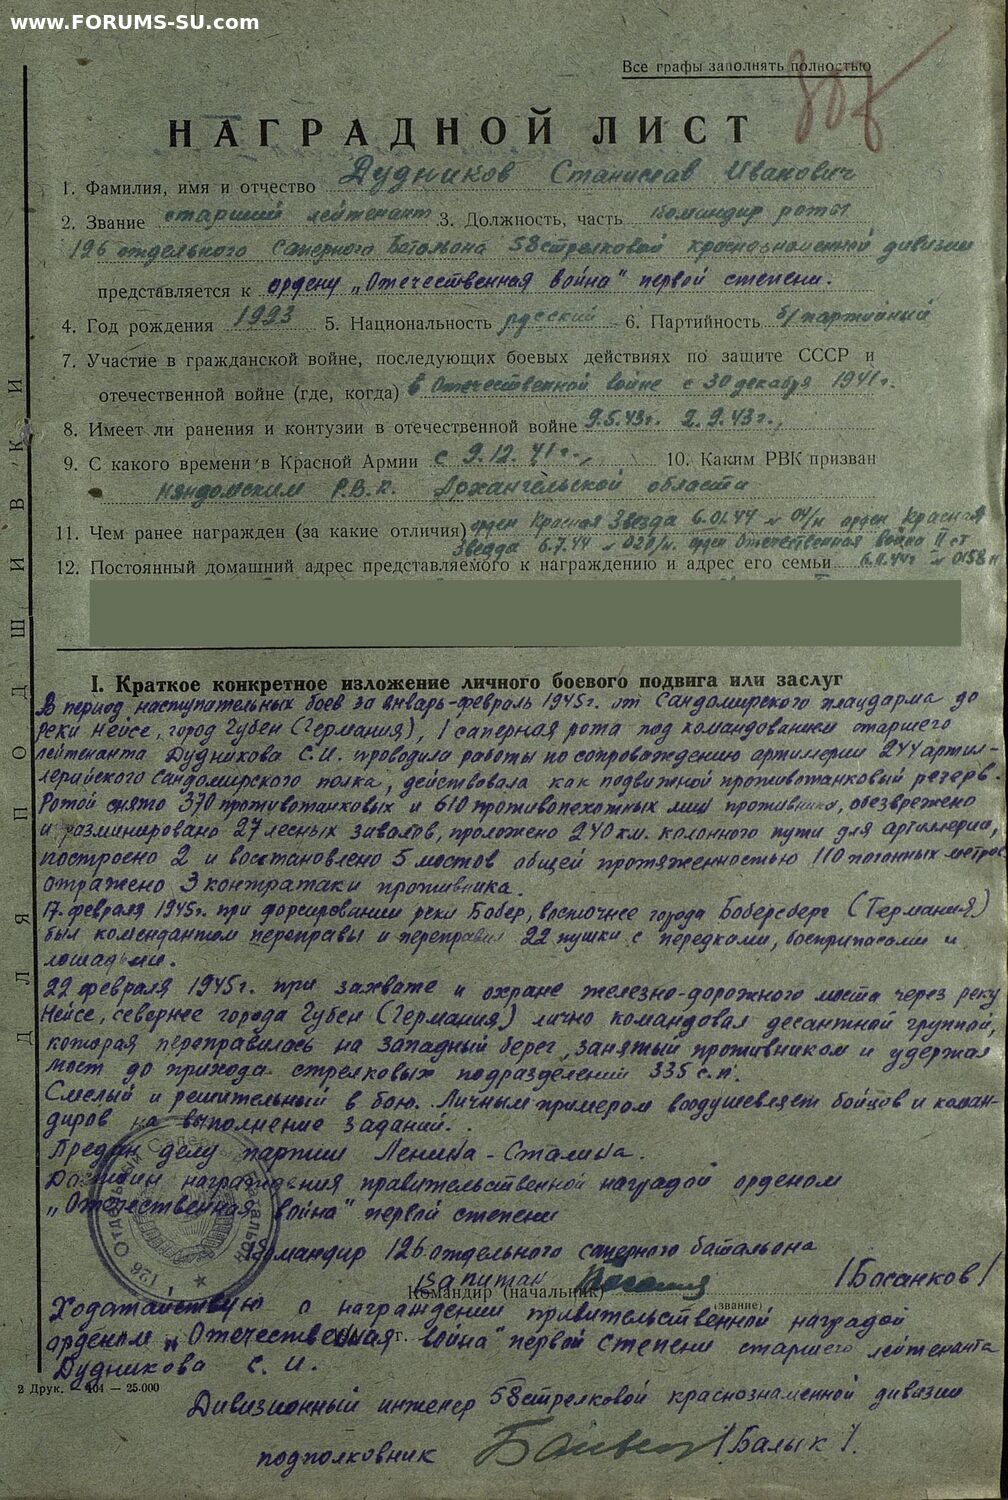 www.FORUMS-SU.com
Все графы заполнять полностью
НАГРАДНОЙ ЛИСТ
1. Фамилия, имя и отчество Дудников Станислав Иванович
2. Звание старший лейтенант 3. Должность, часть командир роты
126 отдельного Саперного Батальона 58 стрелковой краснознаменной дивизии
представляется к ордену „Отечественная война" первой степени.
4. Год рождения 1923 5. Национальность русский 6. Партийность б/партийный
7. Участие в гражданской войне, последующих боевых действиях по защите СССР и
отечественной войне (где, когда) в Отечественной войне с 30 декабря 1941г.
8. Имеет ли ранения и контузии в отечественной войне 9.5.43г. 2.9.43г.,
9. С какого времени в Красной Армии с 9.12.41г., 10. Каким РВК призван
Няндомским Р.В.К. Архангельской области
11. Чем ранее награжден (за какие отличия) орден Красная Звезда 6.01.44 № 04/н орден Красная
Звезда 6.7.44 № 020/н. орден Отечественная война II ст
12. Постоянный домашний адрес представляемого к награждению и адрес его семьи 6.11.44г № 0158 н
ДЛЯ ПОДШИВКИ
I. Краткое конкретное изложение личного боевого подвига или заслуг
В период наступательных боев за январь-февраль 1945г. от Сандомирского плацдарма до
реки Нейсе, город Губен (Германия), 1 саперная рота под командованием старшего
лейтенанта Дудникова С.И. проводила работы по сопровождению артиллерии 244 артил-
лерийского Сандомирского полка, действовала как подвижной противотанковый резерв.
Ротой снято 370 противотанковых и 610 противопехотных мин противника, обезврежено
и разминировано 27 лесных завалов, проложено 240 км. колонного пути для артиллерии,
построено 2 и восстановлено 5 мостов общей протяженностью 110 погонных метров
отражено 3 контратаки противника.
17 февраля 1945г. при форсировании реки Бобер, восточнее города Боберсберг (Германия)
был комендантом переправы и переправил 22 пушки с передками, боеприпасами и
лошадьми.
22 февраля 1945г. при захвате и охране железно-дорожного моста через реку
Нейсе, севернее города Губен (Германия) лично командовал десантной группой,
которая переправилась на западный берег, занятый противником и удержал
мост до прихода стрелковых подразделений 335 с.п.
Смелый и решительный в бою. Личным примером воодушевляет бойцов и коман-
диров на выполнение заданий.
Предан делу партии Ленина - Сталина.
Достоин награждения правительственной наградой орденом
„Отечественная война" первой степени
126 Отдельный Саперный Батальон
Командир 126 отдельного саперного батальона
Капитан /Босанков/
Командир (начальник)
(звание)
Ходатайствую о награждении привительственной наградой
орденом „Отечественная война" первой степени старшего лейтенанта
Дудникова С. И.
2 Друк. 404 — 25.000
Дивизионный инженер 58 стрелковой краснознаменной дивизии
подполковник /Балык/.